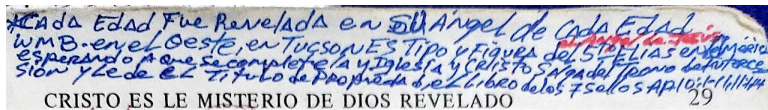 *CADA EDAD FUE REVELADA en SU Ángel de CADA EDAD
WMB. en el Oeste, en TUCSON ES TIPO y FIGURA del 5TO ELIAS en el
esperando A que se complete LA y Iglesia y CRISTO SALGA del Trono de INTERCE
SION y Le de EL TITULO de PROPiedAd, el LibRO de los 7 sellos AP.10:1-11
CRISTO ES LE MISTERIO DE DIOS REVELADO 29